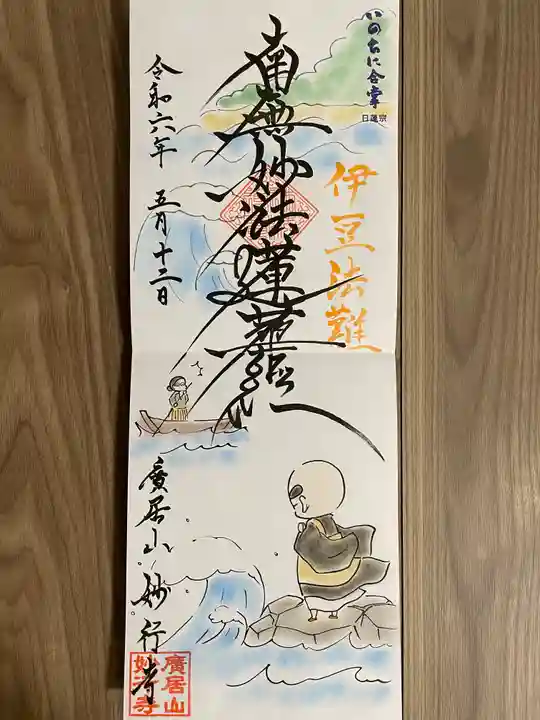 いのちに合掌
日蓮宗
伊豆法難
南無妙法蓮華経
令和六年 五月十二日
廣居山 妙行寺
廣居山
妙行寺